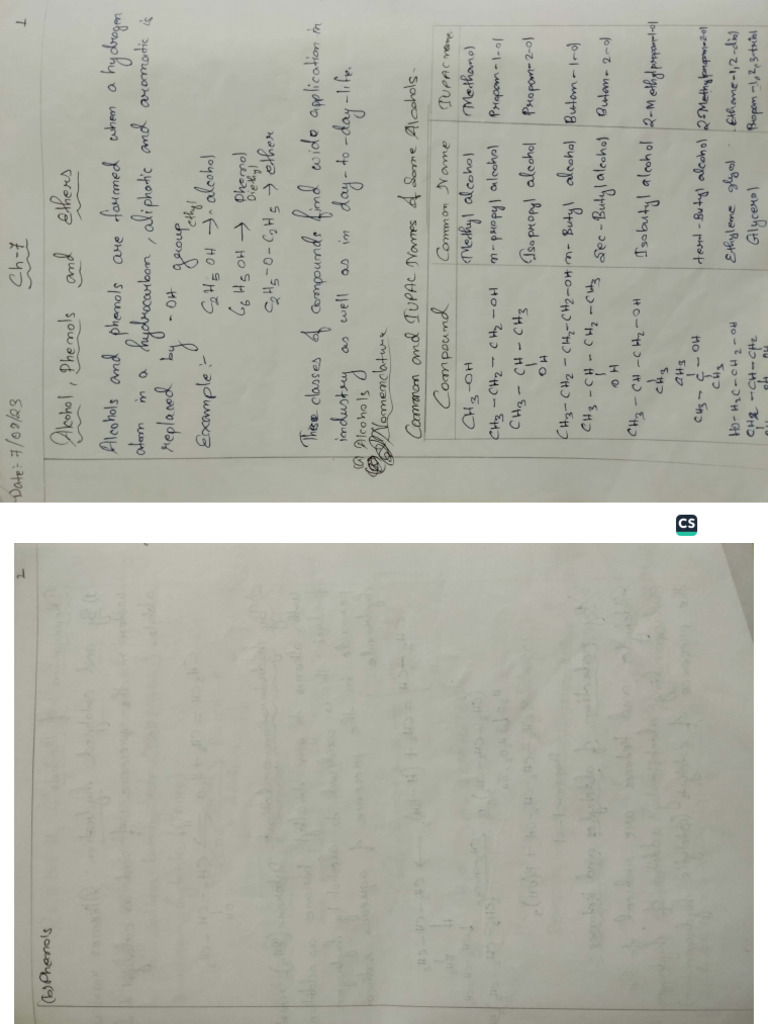 1
Date:- 7/09/23 Ch-7
Alcohol, Phenols and Ethers
Alcohols and phenols are formed when a hydrogen
atom in a hydrocarbon, aliphatic and aromatic is
replaced by -OH group
Example:- C2H5OH → ethyl alcohol
C6H5OH → Phenol
C2H5-O-C2H5 → Diethyl ether
These classes of compounds find wide application in
industry as well as in day-to-day-life.
(a) Alcohols
Nomenclature
Common and IUPAC Names of Some Alcohols-
Compound Common Name IUPAC name
CH3-OH Methyl alcohol Methanol
CH3-CH2-CH2-OH n-propyl alcohol Propan-1-ol
CH3-CH-CH3 Isopropyl alcohol Propan-2-ol
OH
CH3-CH2-CH2-CH2-OH n-Butyl alcohol Butan-1-ol
CH3-CH-CH2-CH3 Sec-Butyl alcohol Butan-2-ol
OH
CH3-CH-CH2-OH Isobutyl alcohol 2-Methylpropan-1-ol
CH3
CH3
CH3-C-OH tert-Butyl alcohol 2-Methylpropan-2-ol
CH3
HO-H2C-CH2-OH Ethylene glyol Ethane-1,2-diol
CH2-CH-CH2 Glycerol Propan-1,2,3-triol
OH OH
CS
2
(b) Phenols